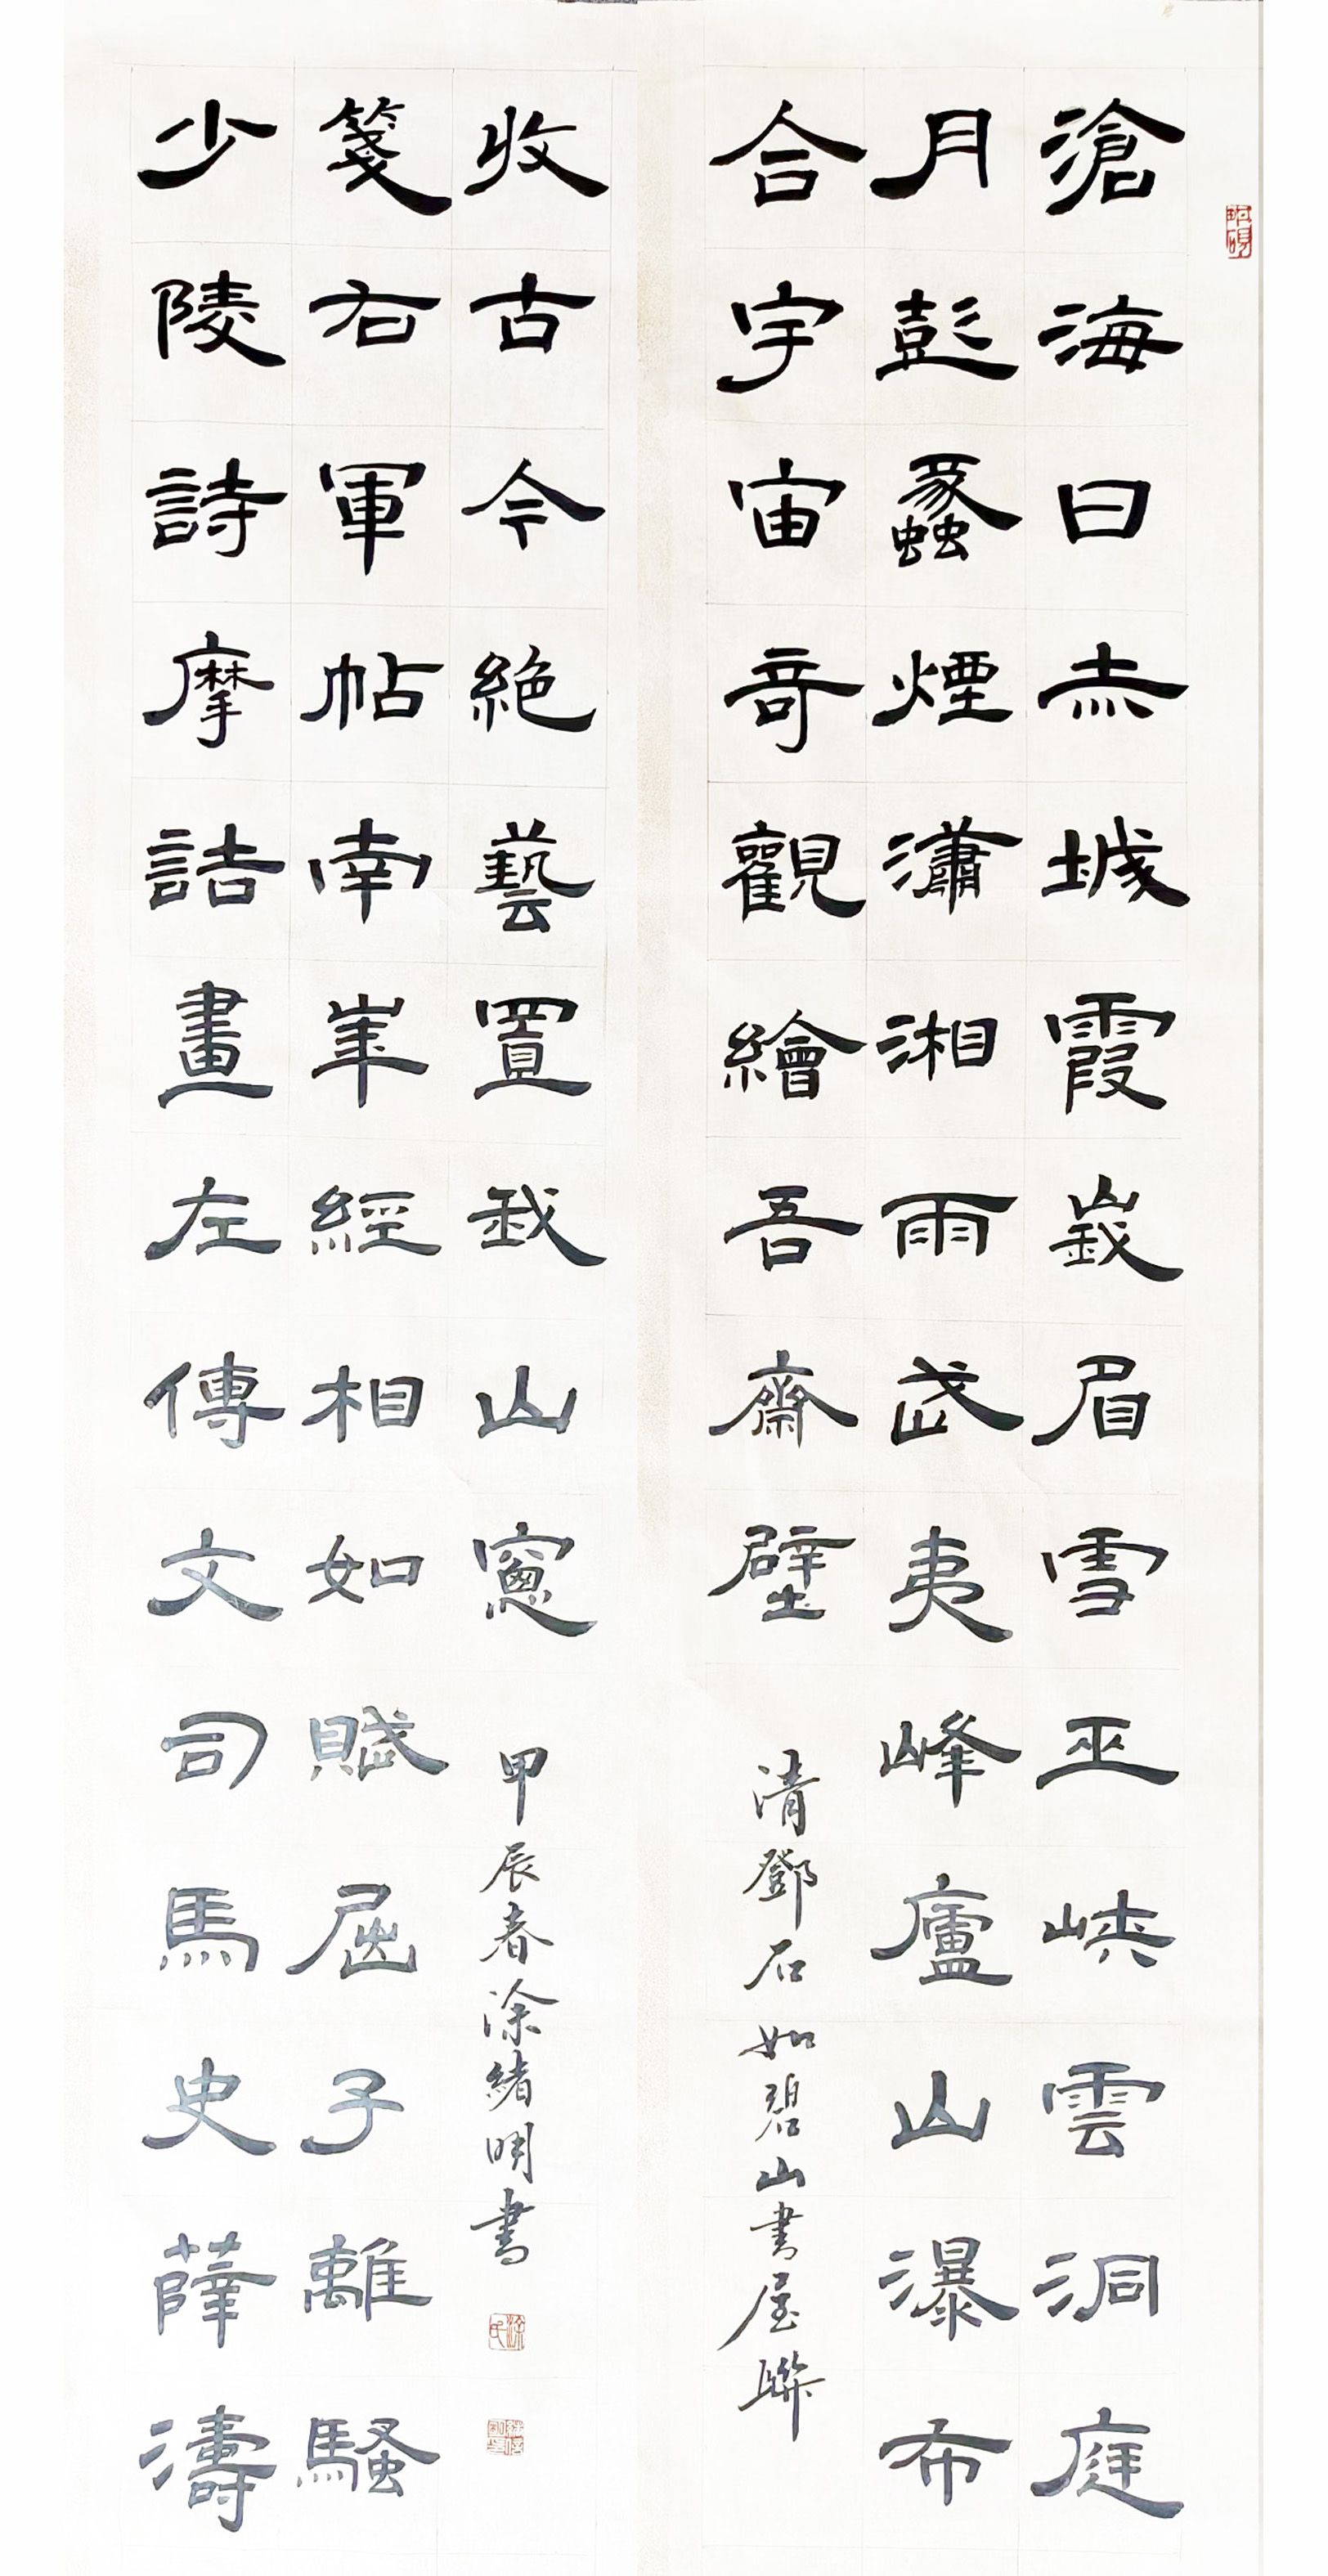 滄海日赤城霞峩眉雪巫峽雲洞庭
月彭蠡煙瀟湘雨武夷峰廬山瀑布
合宇宙奇觀繪吾齋壁
清鄧石如碧山書屋聯
少陵詩摩詰畫左傳文司馬史薛濤
箋右軍帖南華經相如賦屈子離騷
收古今絕藝置我山窻
甲辰春涂緒明書